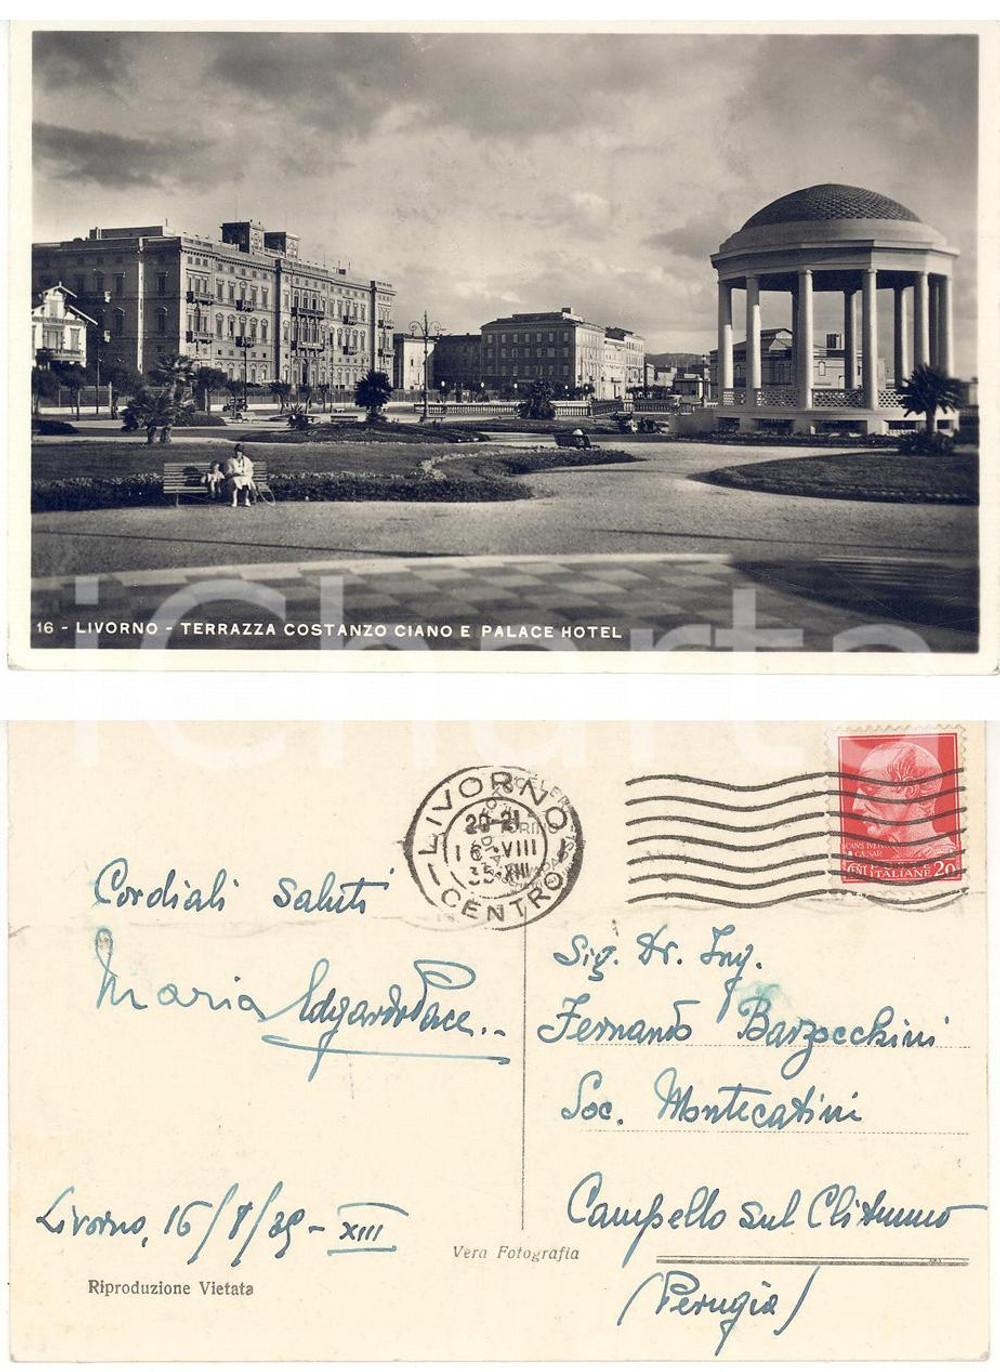 16 - LIVORNO - TERRAZZA COSTANZO CIANO E PALACE HOTEL
iCharta
LIVORNO
20-21
16 VIII
35 XIII
CENTRO
ENI ITALIANE 20
Cordiali saluti
Maria Edgardo Pace..
Sig. Dr. Ing.
Fernando Barzocchini
Soc. Montecatini
Campello sul Clitunno
(Perugia)
Livorno, 16/8/35 - XIII
Vera Fotografia
Riproduzione Vietata